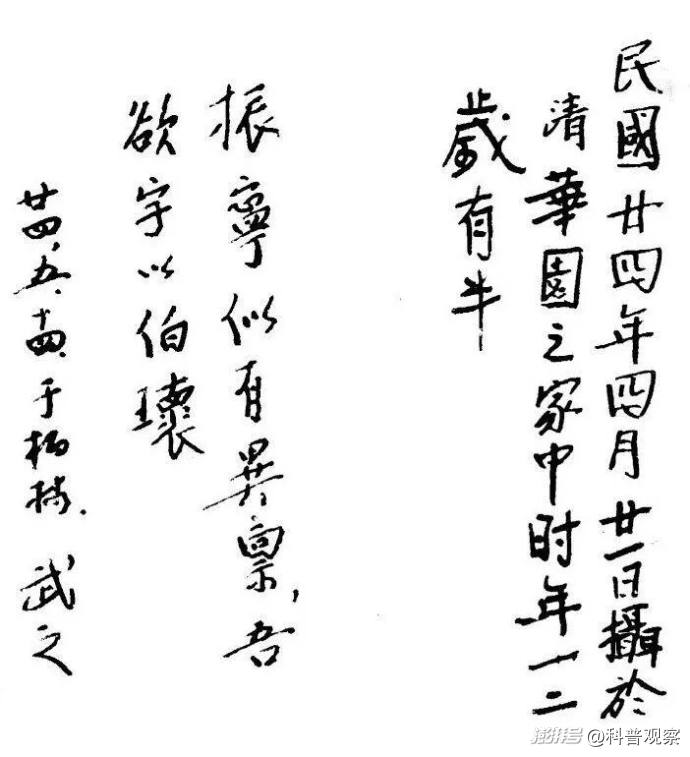 民國廿四年四月廿一日攝於
清華園之家中时年十二
歲有半
振寧似有異禀,吾
欲字以伯瓌
廿四、五、十四、于柏林. 武之
澎湃号 @科普观察